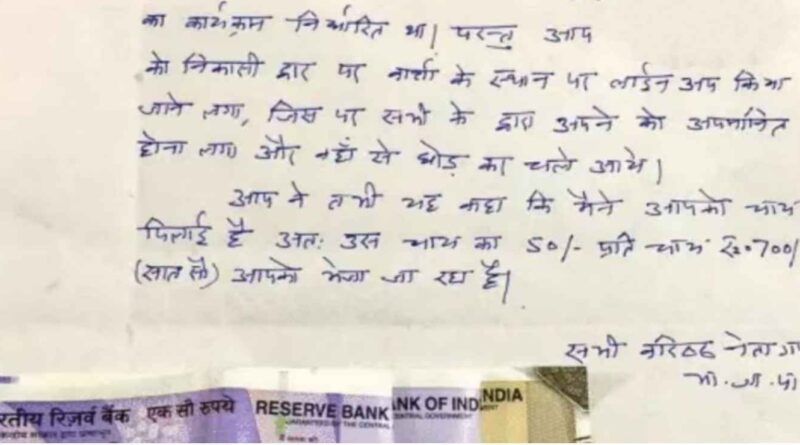 का कार्यक्रम निर्धारित था। परन्तु आप
को निकासी द्वार पर काशी के स्थान पर लाईन अप किया
जाने लगा, जिस पर सभी के द्वारा अपने को अपमानित
होना लगा और वहाँ से छोड़ का चले आये।
आप ने तभी यह कहा कि मैने आपको चाय
पिलाई है अतः उस चाय का 50/- प्रति चाय रू.700/
(सात सौ) आपको भेजा जा रहा है।
सभी वरिष्ठ नेता
भा.ज.पा
रतीय रिज़र्व बैंक एक सौ रुपये RESERVE BANK NK OF IND NDIA